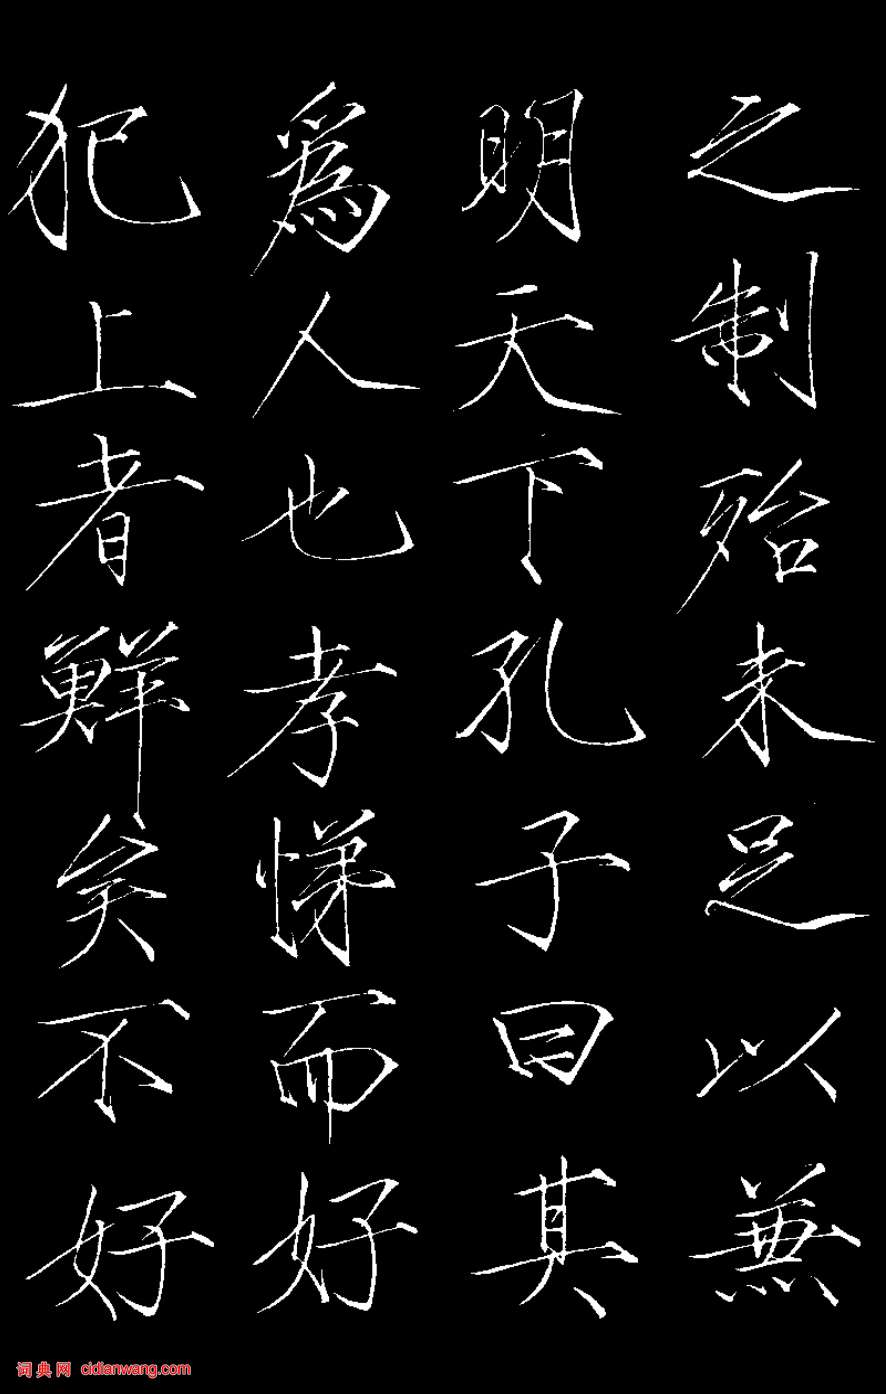 之制殆未足以兼
明天下孔子曰其
爲人也孝悌而好
犯上者鮮矣不好
词典网 cidianwang.com